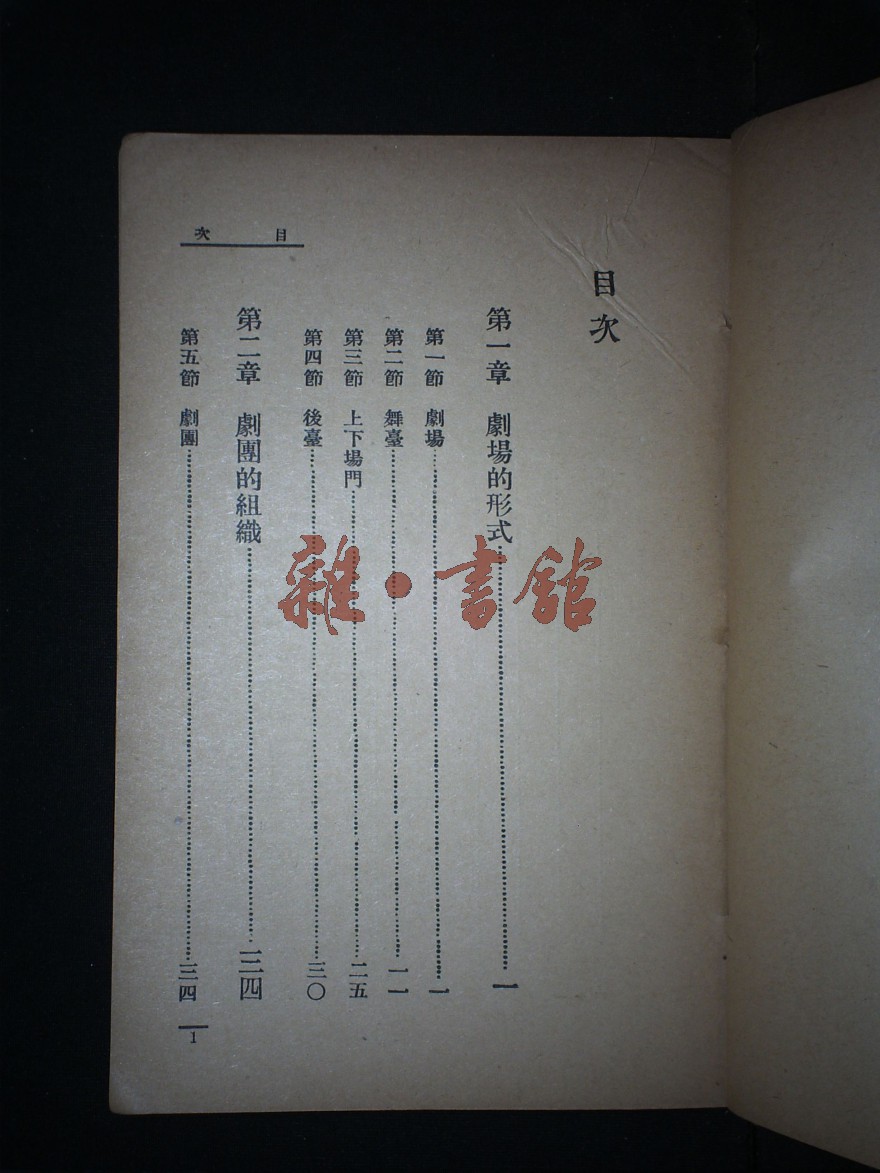 目次
目次
第一章 劇場的形式……一
第一節 劇場……一
第二節 舞臺……一一
第三節 上下場門……二五
第四節 後臺……三〇
第二章 劇團的組織……三四
第五節 劇團……三四
1
雜·書館